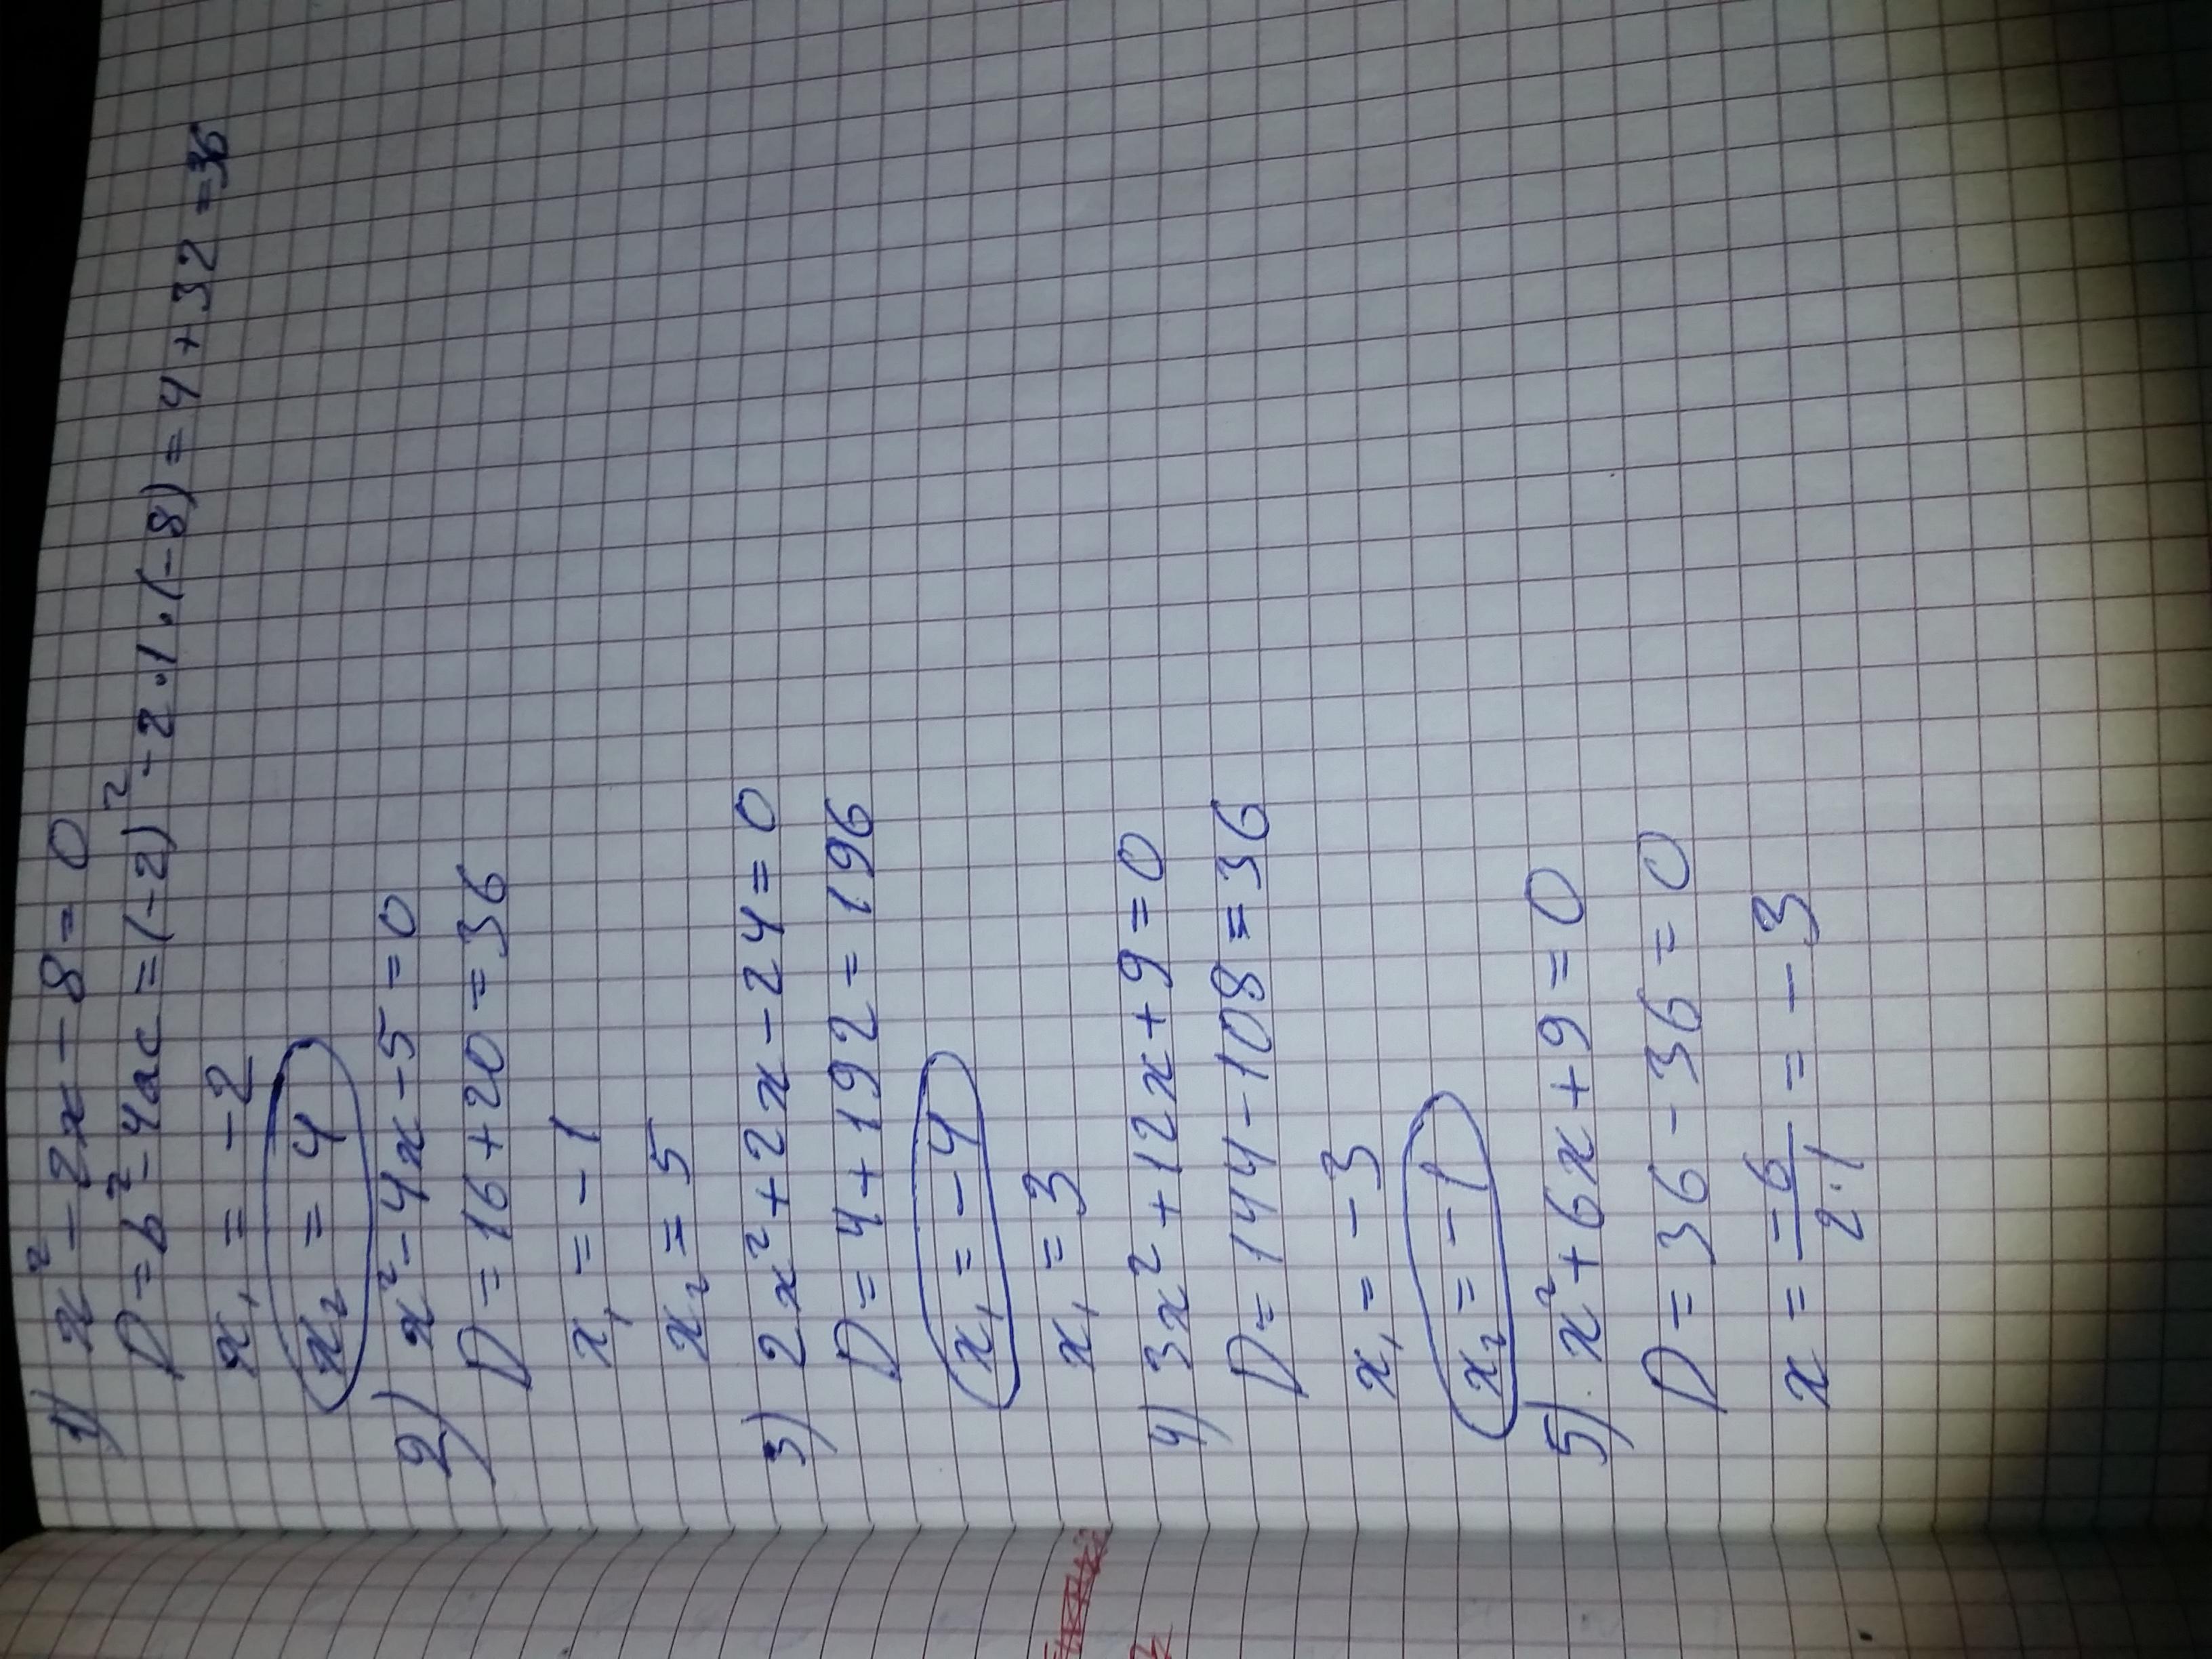 1) x² - 2x - 8 = 0
D = b² - 4ac = (-2)² - 2·1·(-8) = 4 + 32 = 36
x₁ = -2
x₂ = 4
2) x² - 4x - 5 = 0
D = 16 + 20 = 36
x₁ = -1
x₂ = 5
3) 2x² + 2x - 24 = 0
D = 4 + 192 = 196
x₁ = -4
x₁ = 3
4) 3x² + 12x + 9 = 0
D = 144 - 108 = 36
x₁ = -3
x₂ = -1
5) x² + 6x + 9 = 0
D = 36 - 36 = 0
x = -6/2·1 = -3